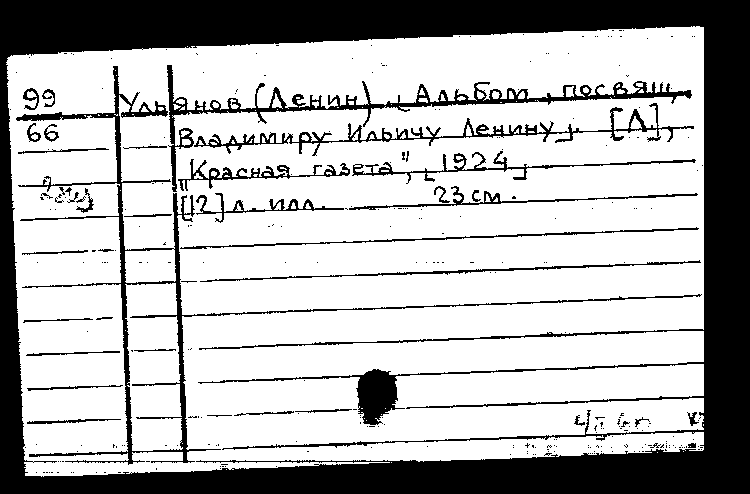 99
66
2 экз
Ульянов (Ленин). [Альбом, посвящ.
Владимиру Ильичу Ленину]. [Л],
"Красная газета", [1924]
[12] л. илл. 23 см.